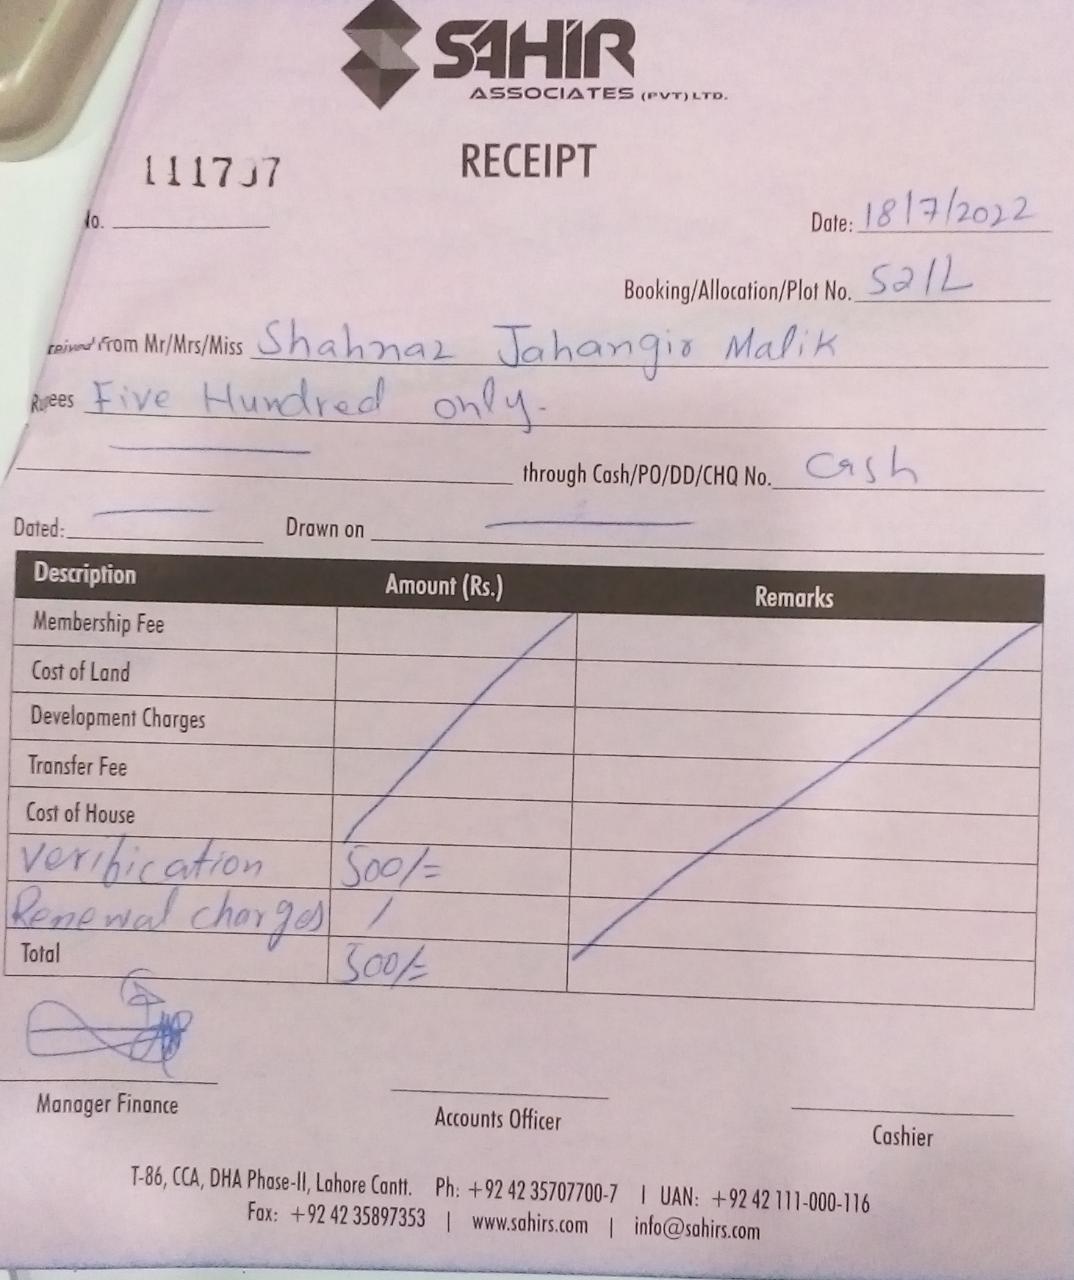 SAHIR
ASSOCIATES (PVT) LTD.
RECEIPT
No.
Date: 18/7/2022
Booking/Allocation/Plot No. 52/L
Received From Mr/Mrs/Miss Shahnaz Jahangir Malik
Rupees Five Hundred only.
through Cash/PO/DD/CHQ No. Cash
Dated: Drawn on
Description Amount (Rs.) Remarks
Membership Fee
Cost of Land
Development Charges
Transfer Fee
Cost of House
Verification 500/=
Renewal charges /
Total 500/=
Manager Finance Accounts Officer Cashier
T-86, CCA, DHA Phase-II, Lahore Cantt. Ph: +92 42 35707700-7 | UAN: +92 42 111-000-116
Fax: +92 42 35897353 | www.sahirs.com | info@sahirs.com